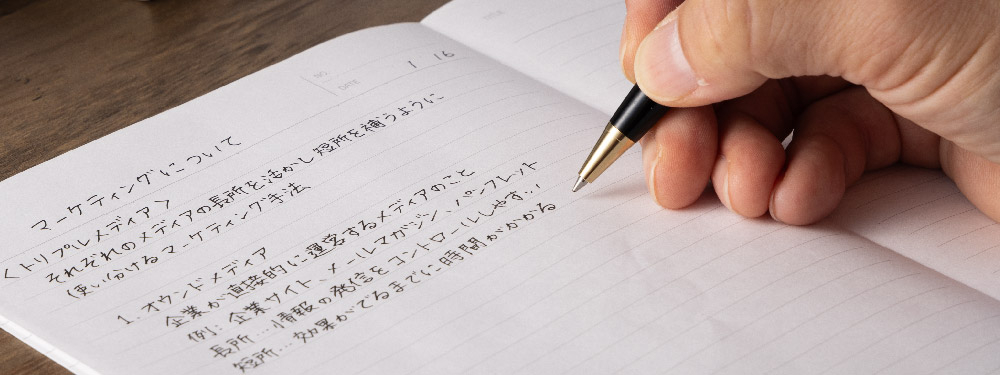 NO.
DATE 1 16
マーケティングについて
<トリプルメディア>
それぞれのメディアの長所を活かし短所を補うように
使い分けるマーケティング手法
1. オウンドメディア
企業が直接的に運営するメディアのこと
例:企業サイト、メールマガジン、パンフレット
長所…情報の発信をコントロールしやすい
短所…効果がでるまでに時間がかかる